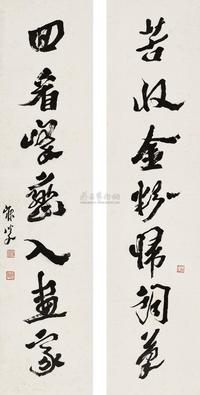 苦收金粉归词笔
回看峰峦入画家